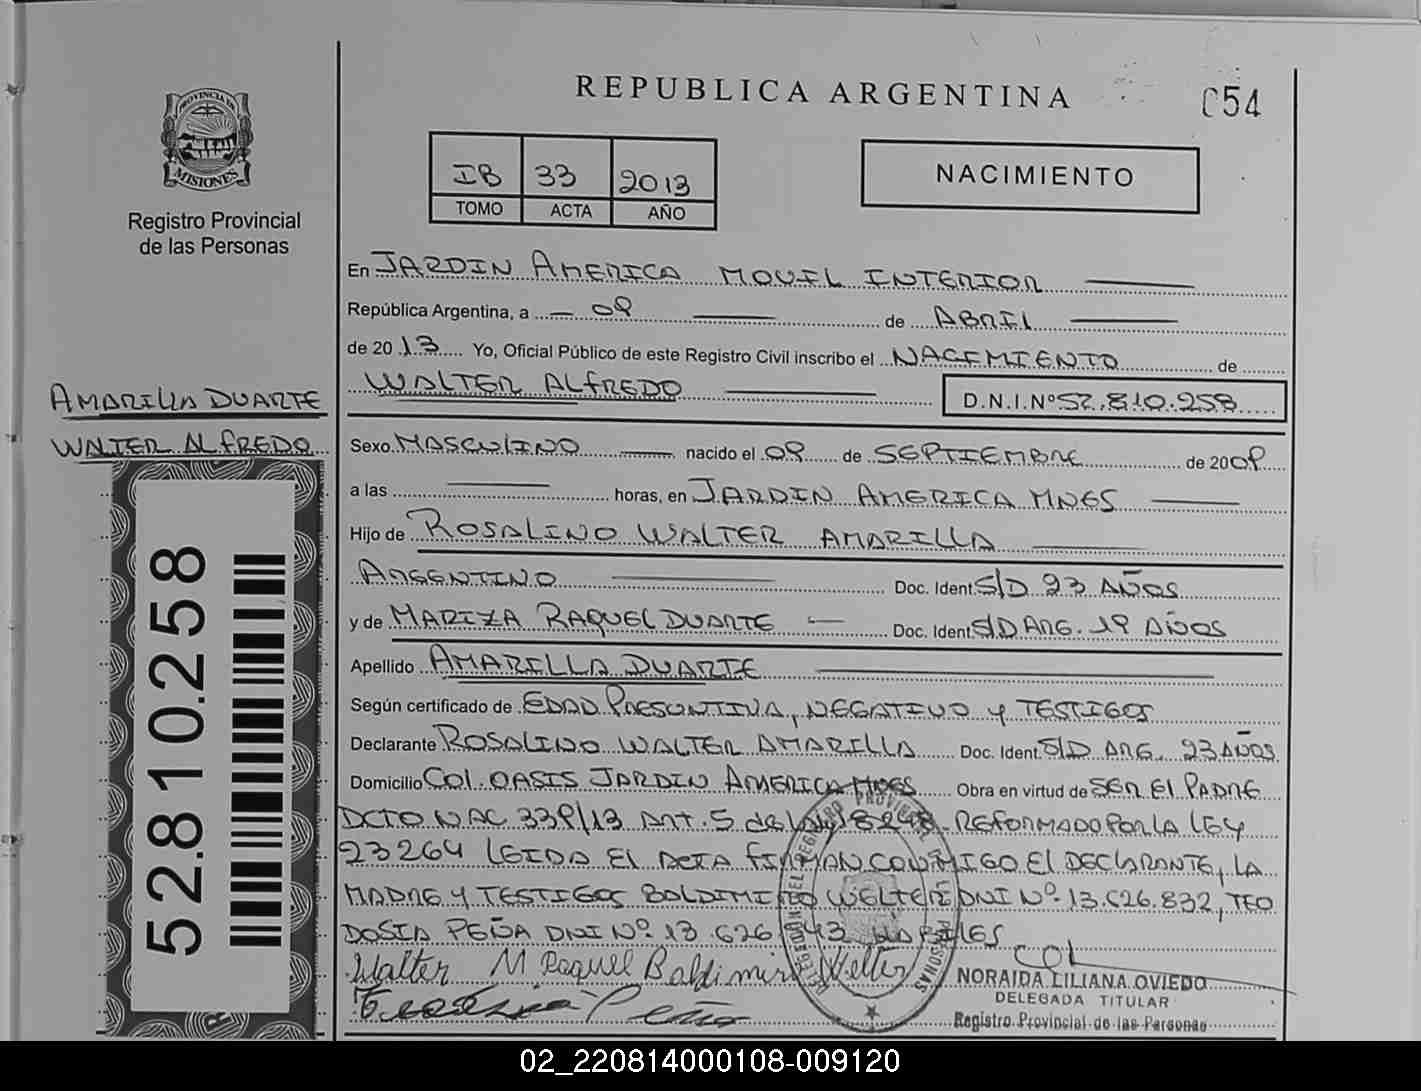 REPUBLICA ARGENTINA
054
PROVINCIA DE
MISIONES
Registro Provincial
de las Personas
IB 33 2013
TOMO ACTA AÑO
NACIMIENTO
En JARDIN AMERICA MOVIL INTERIOR
República Argentina, a 09 de ABRIL
de 2013 Yo, Oficial Público de este Registro Civil inscribo el NACIMIENTO de
WALTER ALFREDO D.N.I.Nº 52.810.258
AMARILLA DUARTE
WALTER ALFREDO
52.810.258
Sexo MASCULINO nacido el 09 de SEPTIEMBRE de 2009
a las horas, en JARDIN AMERICA MNES
Hijo de ROSALINO WALTER AMARILLA
ARGENTINO Doc. Ident. S/D 23 AÑOS
y de MARIZA RAQUEL DUARTE Doc. Ident. S/D ARG. 19 AÑOS
Apellido AMARILLA DUARTE
Según certificado de EDAD PRESUNTIVA, NEGATIVO y TESTIGOS
Declarante ROSALINO WALTER AMARILLA Doc. Ident. S/D ARG. 23 AÑOS
Domicilio COL. OASIS JARDIN AMERICA MNES Obra en virtud de SER El PADRE
DCTO NAC 339/13 ART. 5 de REFORMADO POR LA LEY
23264 LEIDA El ACTA FIRMAN CONMIGO El DECLARANTE, LA
MADRE y TESTIGOS BOLDIMIRO WELTER DNI Nº 13.626.832, TEO
DOSIA PEÑA DNI Nº 13.626 43 HABILES
Walter M Raquel Baldimiro Welter
Peña
NORAIDA LILIANA OVIEDO
DELEGADA TITULAR
Registro Provincial de las Personas
02_220814000108-009120